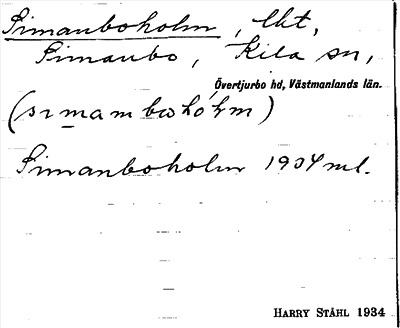 Simanboholm, lht,
Simanbo, Kila sn,
Övertjurbo hd, Västmanlands län.
(sımambωhόḷm)
Simanboholm 1934 ml.
HARRY STÅHL 1934